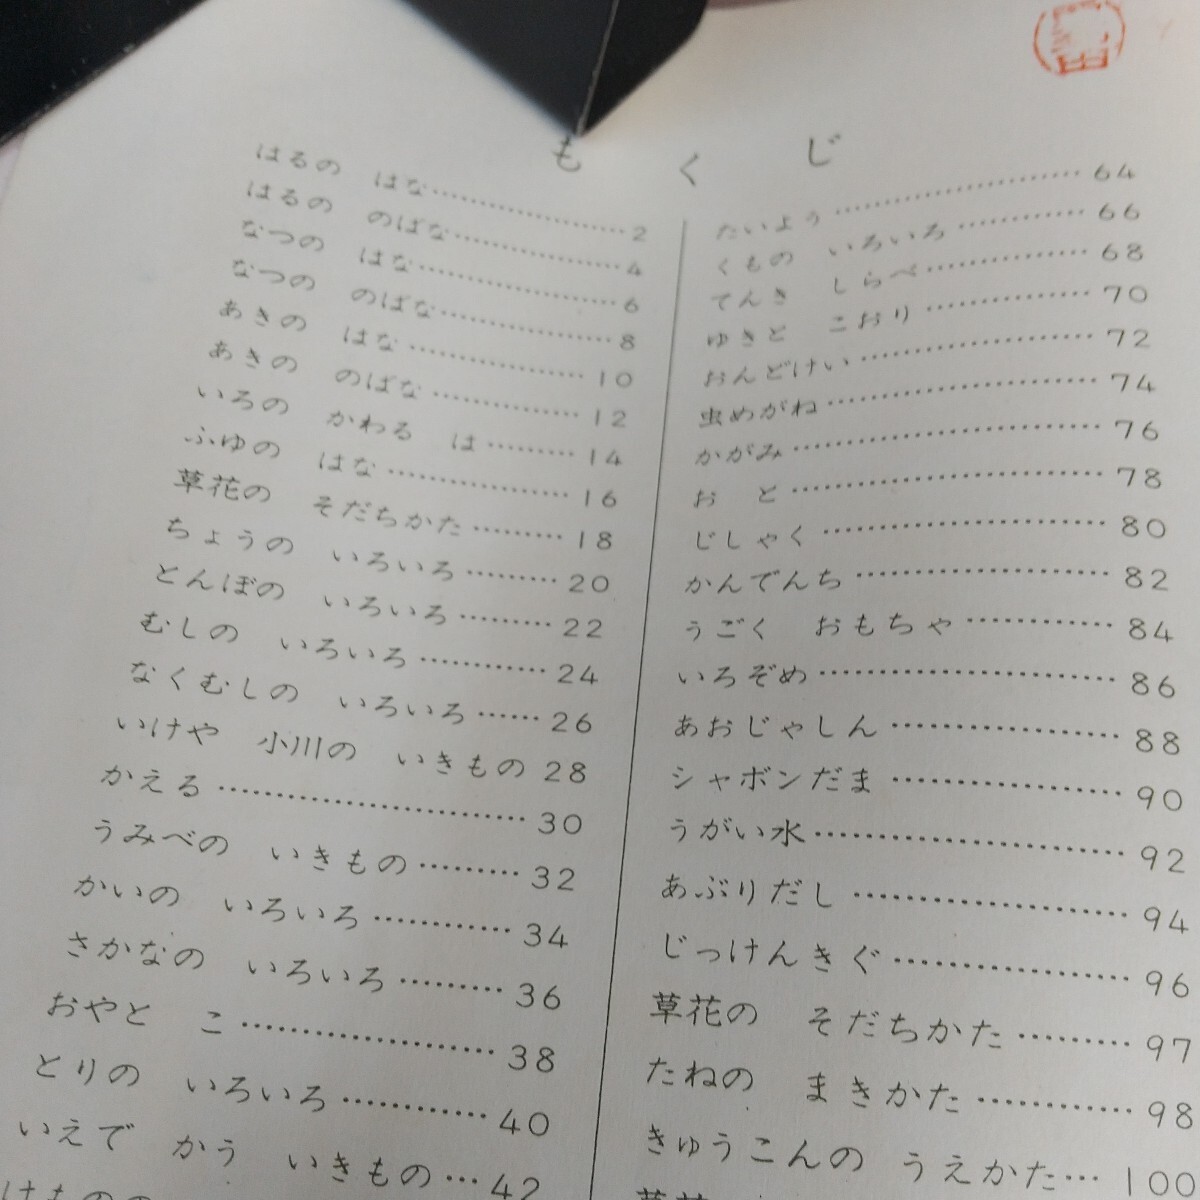 もくじ
はるの はな……………………2
はるの のばな…………………4
なつの はな……………………6
なつの のばな…………………8
あきの はな……………………10
あきの のばな…………………12
いろの かわる は……………14
ふゆの はな……………………16
草花の そだちかた……………18
ちょうの いろいろ……………20
とんぼの いろいろ……………22
むしの いろいろ………………24
なくむしの いろいろ…………26
いけや 小川の いきもの 28
かえる……………………………30
うみべの いきもの……………32
かいの いろいろ………………34
さかなの いろいろ……………36
おやと こ………………………38
とりの いろいろ………………40
いえで かう いきもの………42
たいよう…………………………64
くもの いろいろ………………66
てんき しらべ…………………68
ゆきと こおり…………………70
おんどけい………………………72
虫めがね…………………………74
かがみ……………………………76
おと………………………………78
じしゃく…………………………80
かんでんち………………………82
うごく おもちゃ………………84
いろぞめ…………………………86
あおじゃしん……………………88
シャボンだま……………………90
うがい水…………………………92
あぶりだし………………………94
じっけんきぐ……………………96
草花の そだちかた……………97
たねの まきかた………………98
きゅうこんの うえかた………100